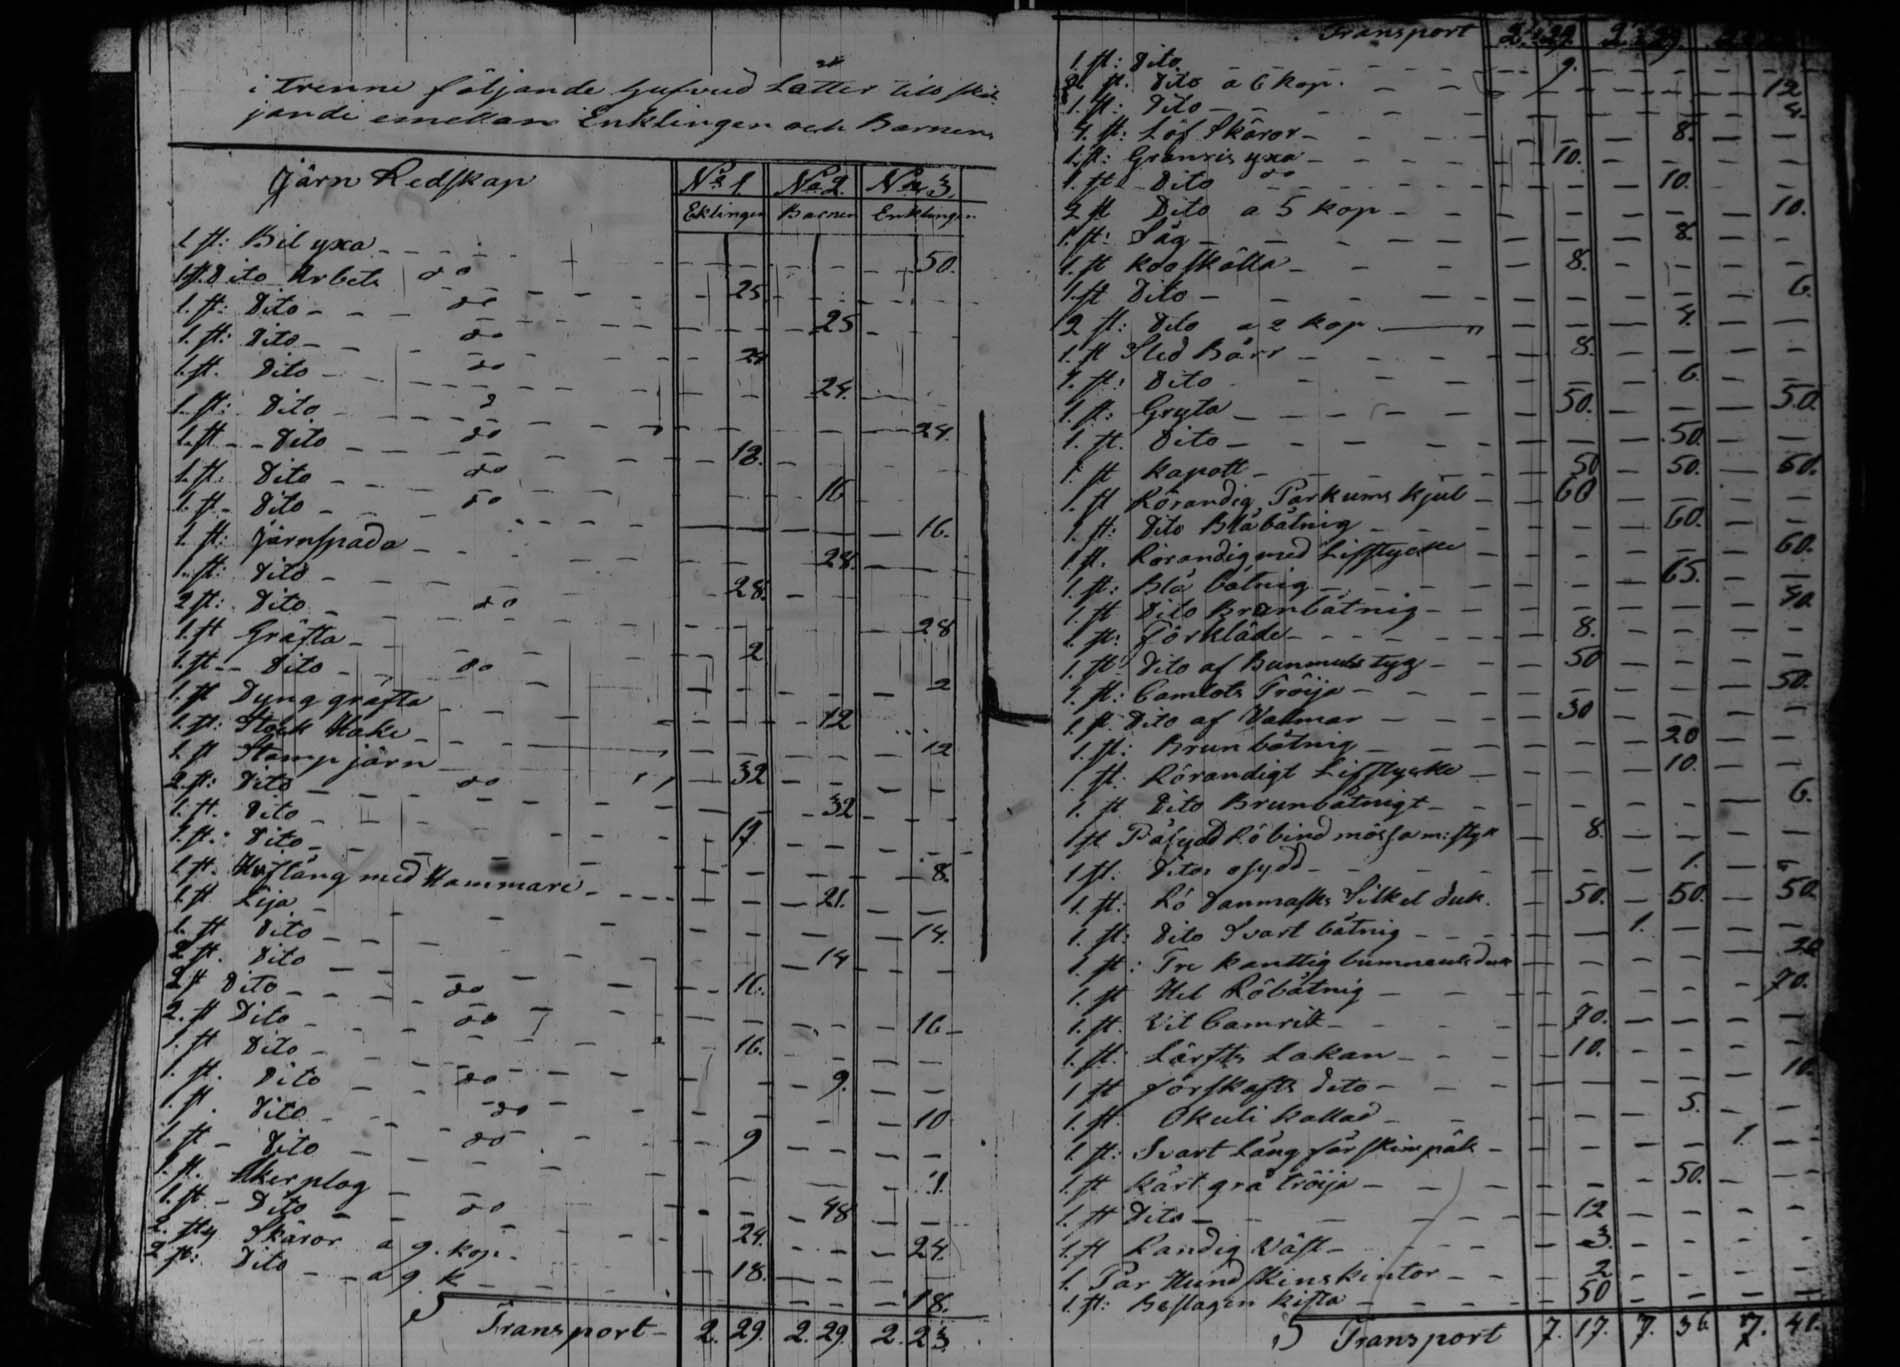 i trenne följande hufvud Lotter till skil
jande emellan Enklingen och Barnen
Järn Redskap No 1 No 2 No 3
Eklingen Barnen Enklingen
1 st: Bil yxa 50.
1 st Dito Arbets do 25
1. st: Dito do 25
1. st: Dito do 24
1. st. Dito do 24.
1. st: Dito 24.
1. st Dito do 18.
1. st. Dito do 16
1. st. Dito do 16.
1. st: Järnspada 28.
1. st: Dito 28.
2 st: Dito do 28
1. st Gräfta 2
1. st Dito do 2
1. st Dyng gräfta 12
1. st: Stock Hake 12
1. st Stamp järn 32
2. st: Dito do 32
1. st. Dito
1. st: Dito 8.
1. st. Hofstång med Hammare 21.
1. st Lija 14.
1. st Dito 14
2 st. Dito 16.
2 st Dito do 16
2. st Dito do 16.
1. st Dito 9.
1. st. Dito do 10
1. st. Dito do 9
1. st Dito do
1. st. Åkerplog 48
1. st Dito do 24.
2. sty Skäror a 9. kop. 24.
2 st: Dito a 9 k 18. 18.
Transport 2. 29. 2. 29. 2. 23.
Transport 2. 29. 2. 29
1. st: Dito 9.
2 st. Dito a 6 kop. 12
1. st: Dito 4.
4. st: Löf skäror 8.
1. st: Granris yxa 10.
1. st Dito do 10.
2 st Dito a 5 kop 10.
1. st: Såg 8.
1. st Koo skälla 8.
1. st Dito 6.
2 st: Dito a 2 kop 4.
1. st Sled Bärr 8.
1. st: Dito 6.
1. st: Gryta 50. 50.
1. st. Dito 50.
1. st Kapott 50 50. 60.
1. st Rörandig Parkums kjol 60
1. st: Dito Blåbåtnig 60.
1. st. Rörandig med Lifstycke 60.
1. st: Blå båtnig 65.
1. st Dito Brunbåtnig 40
1. st: Förkläde 8.
1. st Dito af Bommuls tyg 50
1. st: Camlots Tröija 50.
1. st. Dito af Vallmar 30
1. st: Brunbåtnig 20
1. st. Rörandigt Lifstycke 10.
1. st Dito Brunbåtnigt 6.
1 st Påsydd Rö bind mössa m: styk 8.
1. st. Dito osydd 1.
1. st: Rö Danmasks Silkes duk. 50. 50. 50.
1. st: Dito Svart båtnig 1.
1. st: Tre kanttig bumneuls duk 20
1. st Hel Röbåtnig 70.
1. st. Vit Camrik 70.
1. st: Lärfts Lakan 10.
1 st förskafts dito 10.
1. st. Okuli kallad 5.
1. st: Svart Lång fårskins päls 1.
1. st Kårt grå tröija 50.
1. st Dito 12
1. st Randig Väst 3.
1. Par Hund skinskintor 2
1. st: Beslagen kista 50
Transport 7. 17. 7. 36. 7. 41.